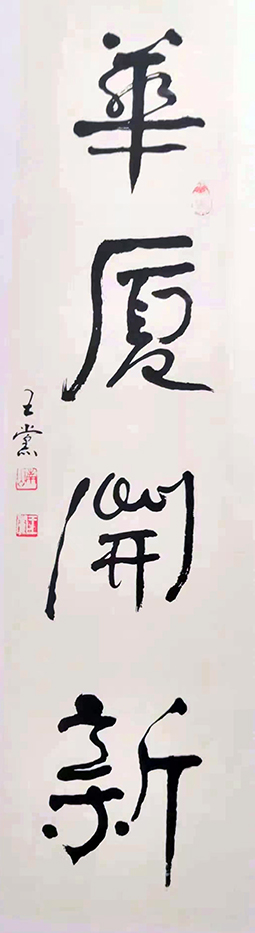 華厦開新
王黨